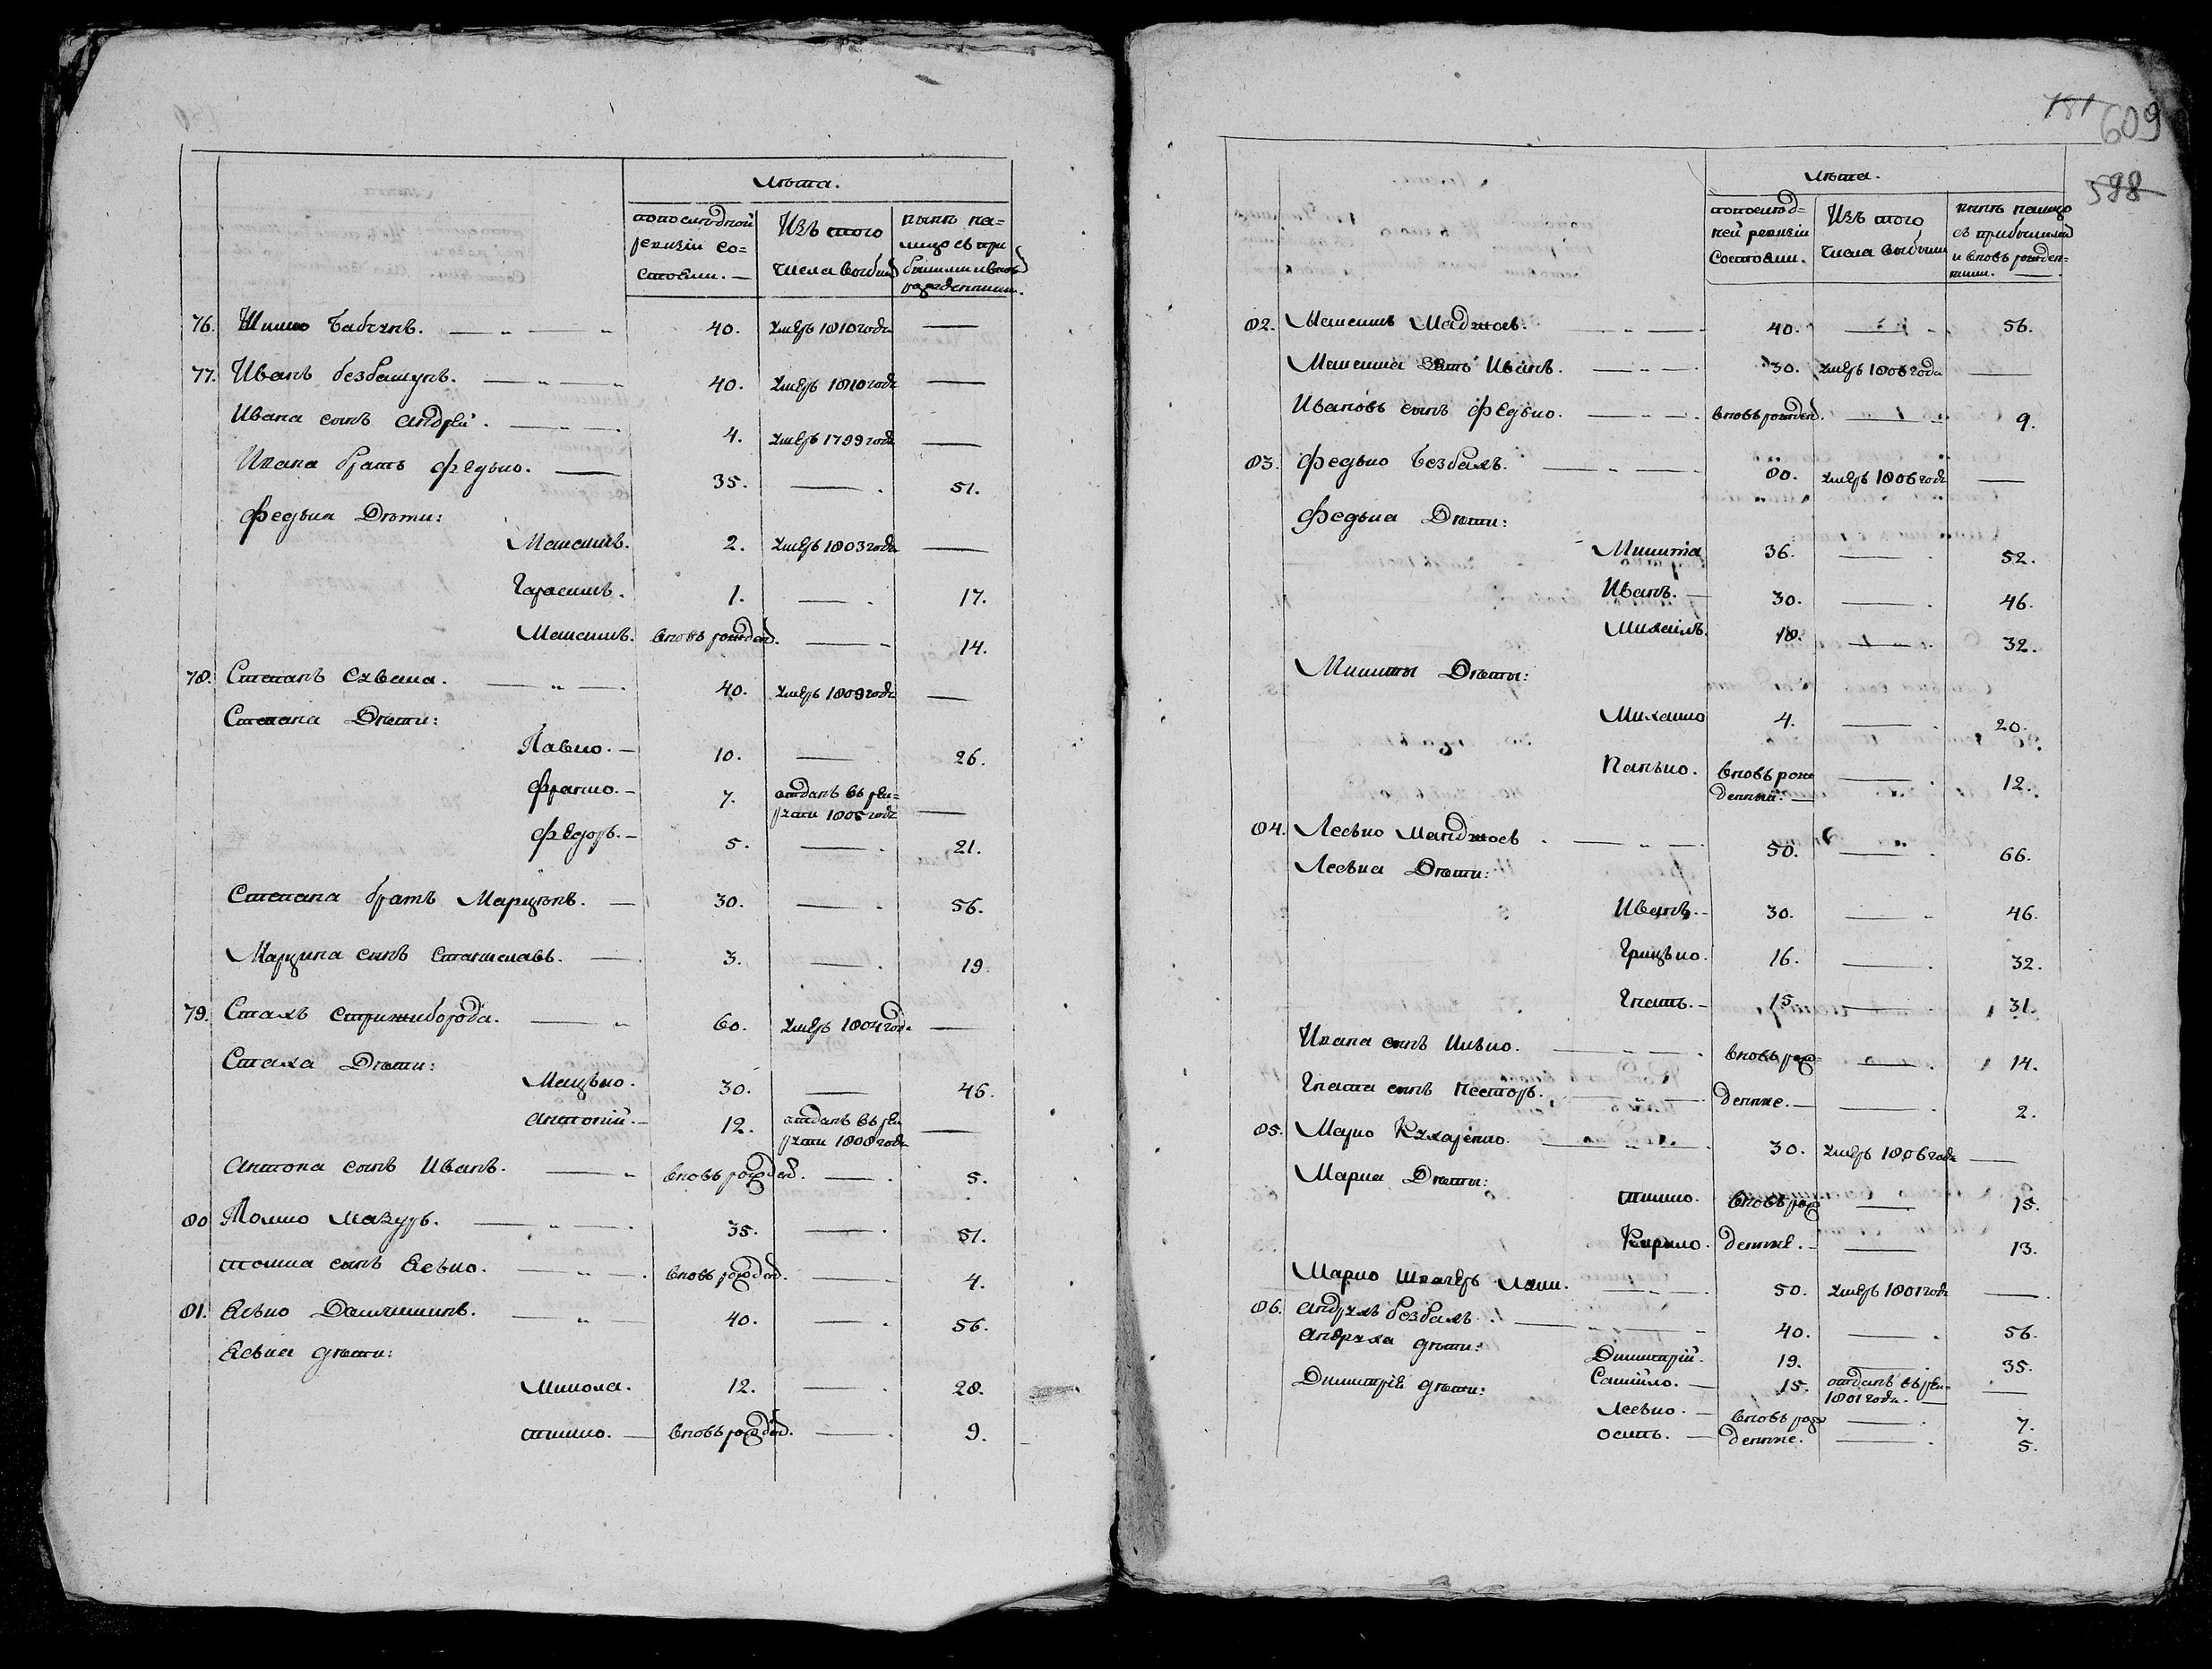 Лѣта.
попослѣдной
ревизіи со-
стояли. —
Изъ того
числа выбыл
нынѣ на-
лицо съ при
былыми и вновь
рожденными.
76. Тимко Бабчукъ. — 40. умеръ 1810 года —
77. Иванъ безбашукъ. — 40. умеръ 1810 года —
Ивана сынъ Андрей. — 4. умеръ 1799 года —
Ивана братъ Федько. — 35. — 51.
Федька Дѣти:
Максимъ. 2. умеръ 1803 года —
Гарасимъ. 1. — 17.
Максимъ. вновь рожден. — 14.
78. Степанъ — 40. умеръ 1809 года —
Степана Дѣти:
Павло. — 10. — 26.
Франко. — 7. отданъ въ рек-
руты 1805 года —
Федоръ. — 5. — 21.
Степана братъ Марцѣнъ. — 30. — 56.
Марцина сынъ Станиславъ. — 3. — 19.
79. Стахъ Стрижиборода. — 60. умеръ 1804 года —
Стаха Дѣти:
Мацько. 30. — 46.
Антоній. — 12. отданъ въ рек
руты 1808 года —
Антона сынъ Иванъ. — вновь рожден. — 5.
80 Томко Мазуръ. — 35. — 51.
Томка сынъ Яско. — вновь рожден. — 4.
81. Яско — 40. — 56.
Яська дѣти:
Микола. 12. — 28.
Тимко. — вновь рожден. — 9.
181
609
598
Лѣта.
попослѣд-
ней ревизіи
состояли.
Изъ того
числа выбыли
нынѣ налицо
съ прибылыми
и вновь рожден-
ными. —
82. Максимъ — 40. — 56.
Максима зять Иванъ. — 30. умеръ 1806 года —
Ивановъ сынъ Федько. — вновь рожден. — 9.
83. Федько Безбахъ. — 80. умеръ 1806 года —
Федька Дѣти:
Микита 36. — 52.
Иванъ. — 30. — 46.
Михайлъ. 18. — 32.
Микиты Дѣты:
Михайло 4. — 20.
Панько. вновь рож
денный. — — 12.
84. Лесько — 50. — 66.
Леська Дѣти:
Иванъ. — 30. — 46.
Грицько. 16. — 32.
Гнатъ. — 15. — 31.
Ивана сынъ Илько. — вновь рож- — 14.
Гната сынъ Несторъ. — денные. — — 2.
85. Марко Кухаренко. — 30. умеръ 1806 года —
Марка Дѣты:
Тимко. вновь рож — 15.
Кирило. денные. — — 13.
Марко швагеръ — 50. умеръ 1801 года —
86. Андрухъ безбахъ. — 40. — 56.
Андруха дѣти: Димитрій. 19. — 35.
Самійло. — 15. отданъ въ рек-
1801 года. — —
Димитрія дѣти:
Лесько. — вновь рож — 7.
Осипъ. — денные. — 5.